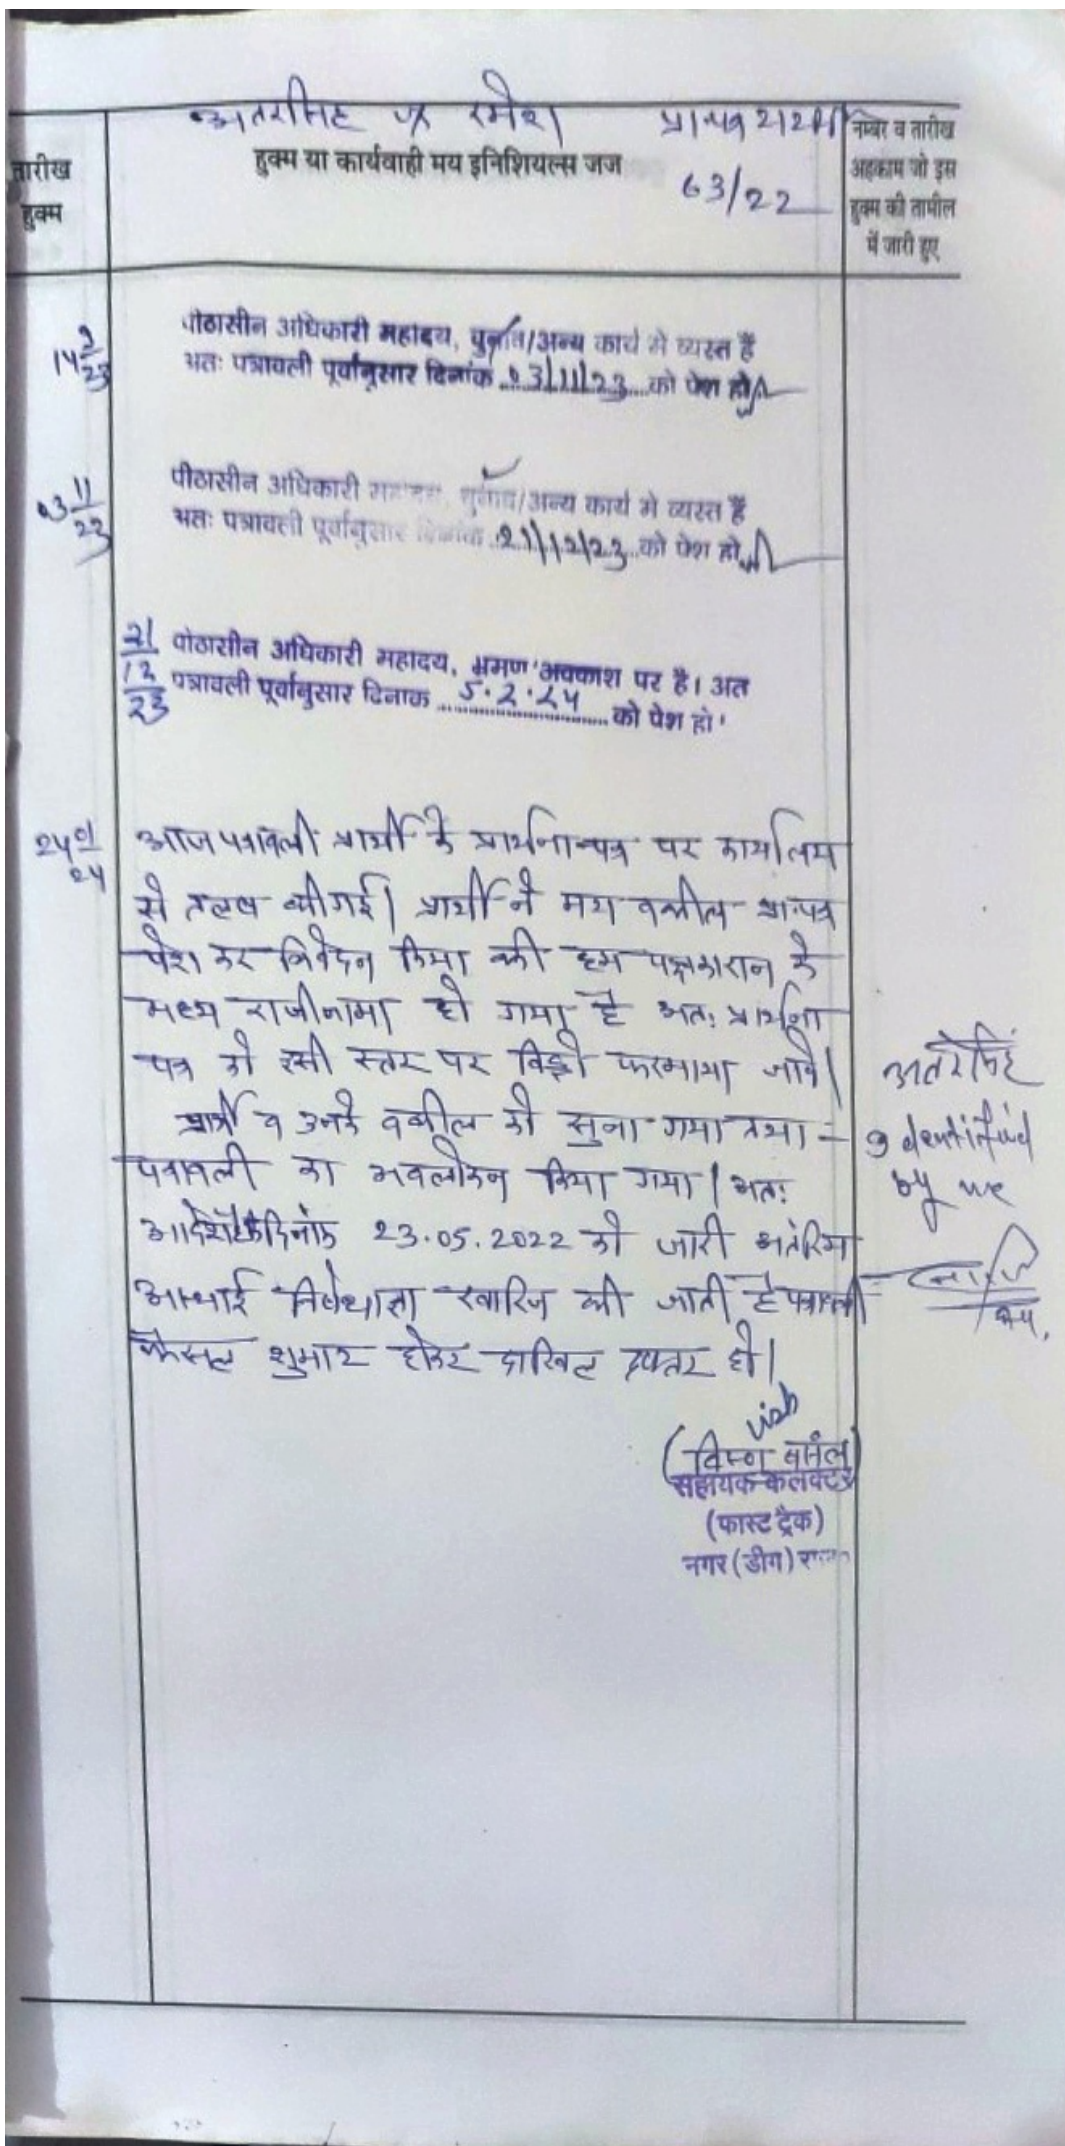 अतरसिंह रमेश प्रा.पत्र 212
63/22
तारीख
हुक्म
हुक्म या कार्यवाही मय इनिशियल्स जज
नम्बर व तारीख
अहकाम जो इस
हुक्म की तामील
में जारी हुए
पीठासीन अधिकारी महोदय, चुनाव/अन्य कार्य मे व्यस्त हैं
अतः पत्रावली पूर्वानुसार दिनांक 03/11/23 को पेश हो
03 11/23
पीठासीन अधिकारी महोदय, चुनाव/अन्य कार्य मे व्यस्त हैं
अतः पत्रावली पूर्वानुसार दिनांक 21/12/23 को पेश हो
21/12/23
पीठासीन अधिकारी महादय, भ्रमण अवकाश पर है। अत
पत्रावली पूर्वानुसार दिनाक 5.2.24 को पेश हो
24 01/24
आज पत्रावली प्रार्थी के प्रार्थना पत्र पर कार्यालय
से तलब की गई। प्रार्थी ने मय वकील प्रा.पत्र
पेश कर निवेदन किया की हम पक्षकारान के
मध्य राजीनामा हो गया है अतः प्रार्थना
पत्र को इसी स्तर पर विड्रो फरमाया जावे।
प्रार्थी व उनके वकील को सुना गया तथा -
पत्रावली का अवलोकन किया गया। अतः
दिनांक 23.05.2022 को जारी अतंरिम
अस्थाई निषेधाज्ञा खारिज की जाती है पत्रावली
फैसल शुमार होकर दाखिल दफ्तर हो।
अतरसिंह
Identified
by me
(विष्णु बंसल)
सहायक कलक्टर
(फास्ट ट्रैक)
नगर (डीग)